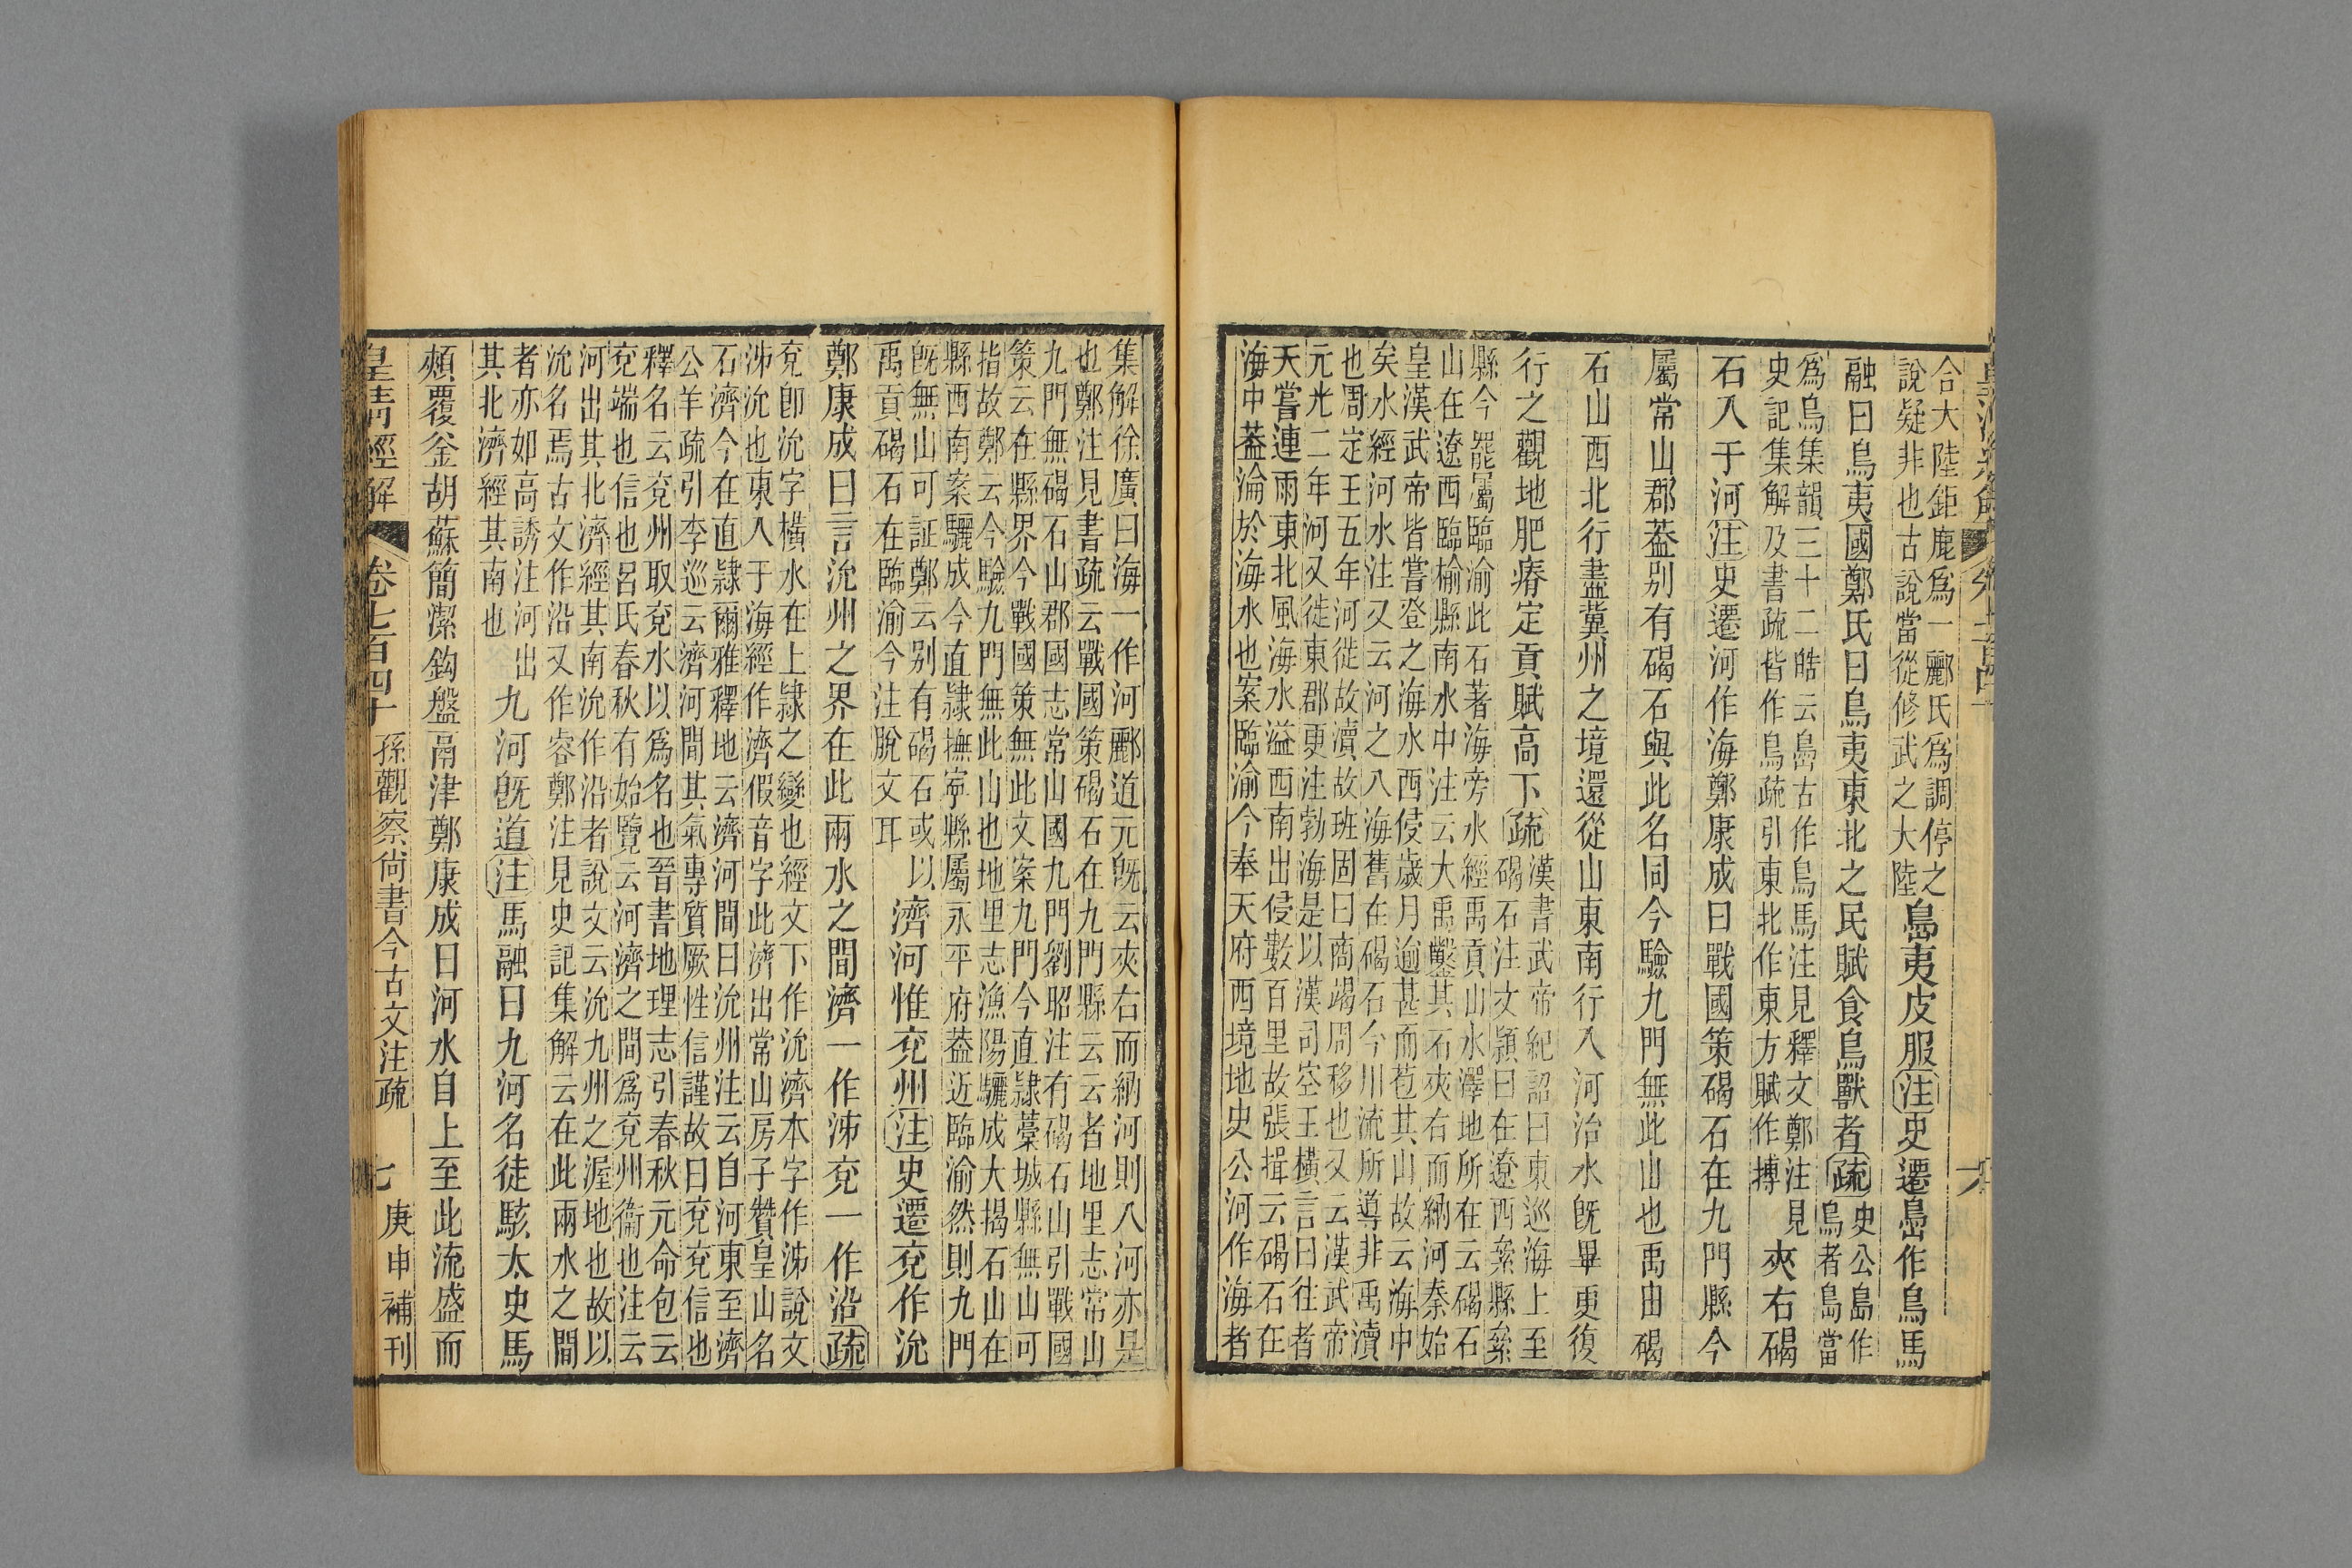 合大陸鉅鹿爲一酈氏爲調停之
說疑非也古說當從修武之大陸
島夷皮服注史遷島作鳥馬
融曰鳥夷國鄭氏曰鳥夷東北之民賦食鳥獸者疏
史公島作
鳥者島當
爲鳥集韻三十二皓云島古作鳥馬注見釋文鄭注見
史記集解及書疏皆作鳥疏引東北作東方賦作搏
夾右碣
石入于河注史遷河作海鄭康成曰戰國策碣石在九門縣今
屬常山郡葢別有碣石與此名同今驗九門無此山也禹由碣
石山西北行盡冀州之境還從山東南行入河治水旣畢更復
行之觀地肥瘠定貢賦高下疏
漢書武帝紀詔曰東巡海上至
碣石注文潁曰在遼西絫縣絫
縣今罷屬臨渝此石著海旁水經禹貢山水澤地所在云碣石
山在遼西臨榆縣南水中注云大禹鑿其石夾右而納河秦始
皇漢武帝皆嘗登之海水西侵歲月逾甚而苞其山故云海中
矣水經河水注又云河之入海舊在碣石今川流所導非禹瀆
也周定王五年河徙故瀆故班固曰商竭周移也又云漢武帝
元光二年河又徙東郡更注勃海是以漢司空王橫言曰往者
天嘗連雨東北風海水溢西南出侵數百里故張揖云碣石在
海中葢淪於海水也案臨渝今奉天府西境地史公河作海者
集解徐廣曰海一作河酈道元旣云夾右而納河則八河亦是
也鄭注見書疏云戰國策碣石在九門縣云云者地里志常山
九門無碣石山郡國志常山國九門劉昭注有碣石山引戰國
策云在縣界今戰國策無此文案九門今直隸藁城縣無山可
指故鄭云今驗九門無此山也地里志漁陽驪成大揭石山在
縣西南案驪成今直隸撫寧縣屬永平府葢近臨渝然則九門
旣無山可証鄭云別有碣石或以
禹貢碣石在臨渝今注脫文耳
濟河惟兗州注史遷兗作沇
鄭康成曰言沇州之界在此兩水之間濟一作泲兗一作沿疏
兗卽沇字橫水在上隸之變也經文下作沇濟本字作泲說文
泲沇也東入于海經作濟假音字此濟出常山房子贊皇山名
石濟今在直隸爾雅釋地云濟河間曰沇州注云自河東至濟
公羊疏引李巡云濟河間其氣專質厥性信謹故曰兗兗信也
釋名云兗州取兗水以爲名也晉書地理志引春秋元命包云
兗端也信也呂氏春秋有始覽云河濟之間爲兗州衞也注云
河出其北濟經其南沇作沿者說文云沇九州之渥地也故以
沇名焉古文作沿又作㕡鄭注見史記集解云在此兩水之間
者亦如高誘注河出
其北濟經其南也
九河旣道注馬融曰九河名徒駭太史馬
頰覆釜胡蘇簡潔鈎盤鬲津鄭康成曰河水自上至此流盛而
皇清經解 卷七百四十 孫觀察尚書今古文注疏 七 庚申補刊